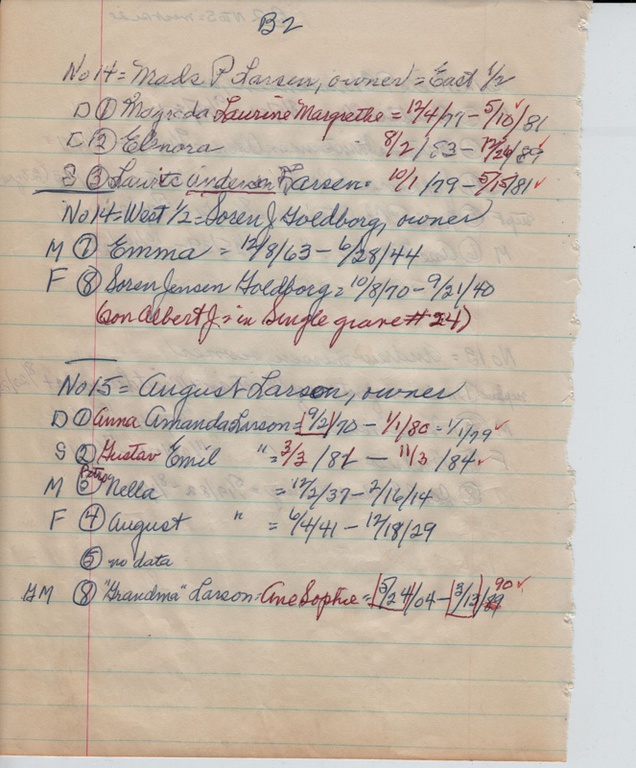 B2
No 14 = Mads P Larsen, owner = East 1/2
D ① Magreda Laurine Margrethe = 12/4/79 - 5/10/81
② Elmora 8/2/53 - 12/26/89
S ③ Laurits Andersen Larsen = 10/1/79 - 5/15/81
No 14 = West 1/2 = Soren J Goldborg, owner
M ⑦ Emma = 12/8/63 - 6/28/44
F ⑧ Soren Jensen Goldborg = 10/8/70 - 9/21/40
(son Albert J = in Single grave # 24)
No 15 = August Larson, owner
D ① Anna Amanda Larson = 9/21/70 - 1/1/80 = 1/1/79
S ② Gustav Emil " = 3/3/81 - 11/3/84
M ③ Petro Nella = 12/2/37 - 2/16/14
F ④ August " = 6/4/41 - 12/18/29
⑤ no data
GM ⑧ "Grandma" Larson = Ane Sophie = 5/24/04 - 3/13/89 90